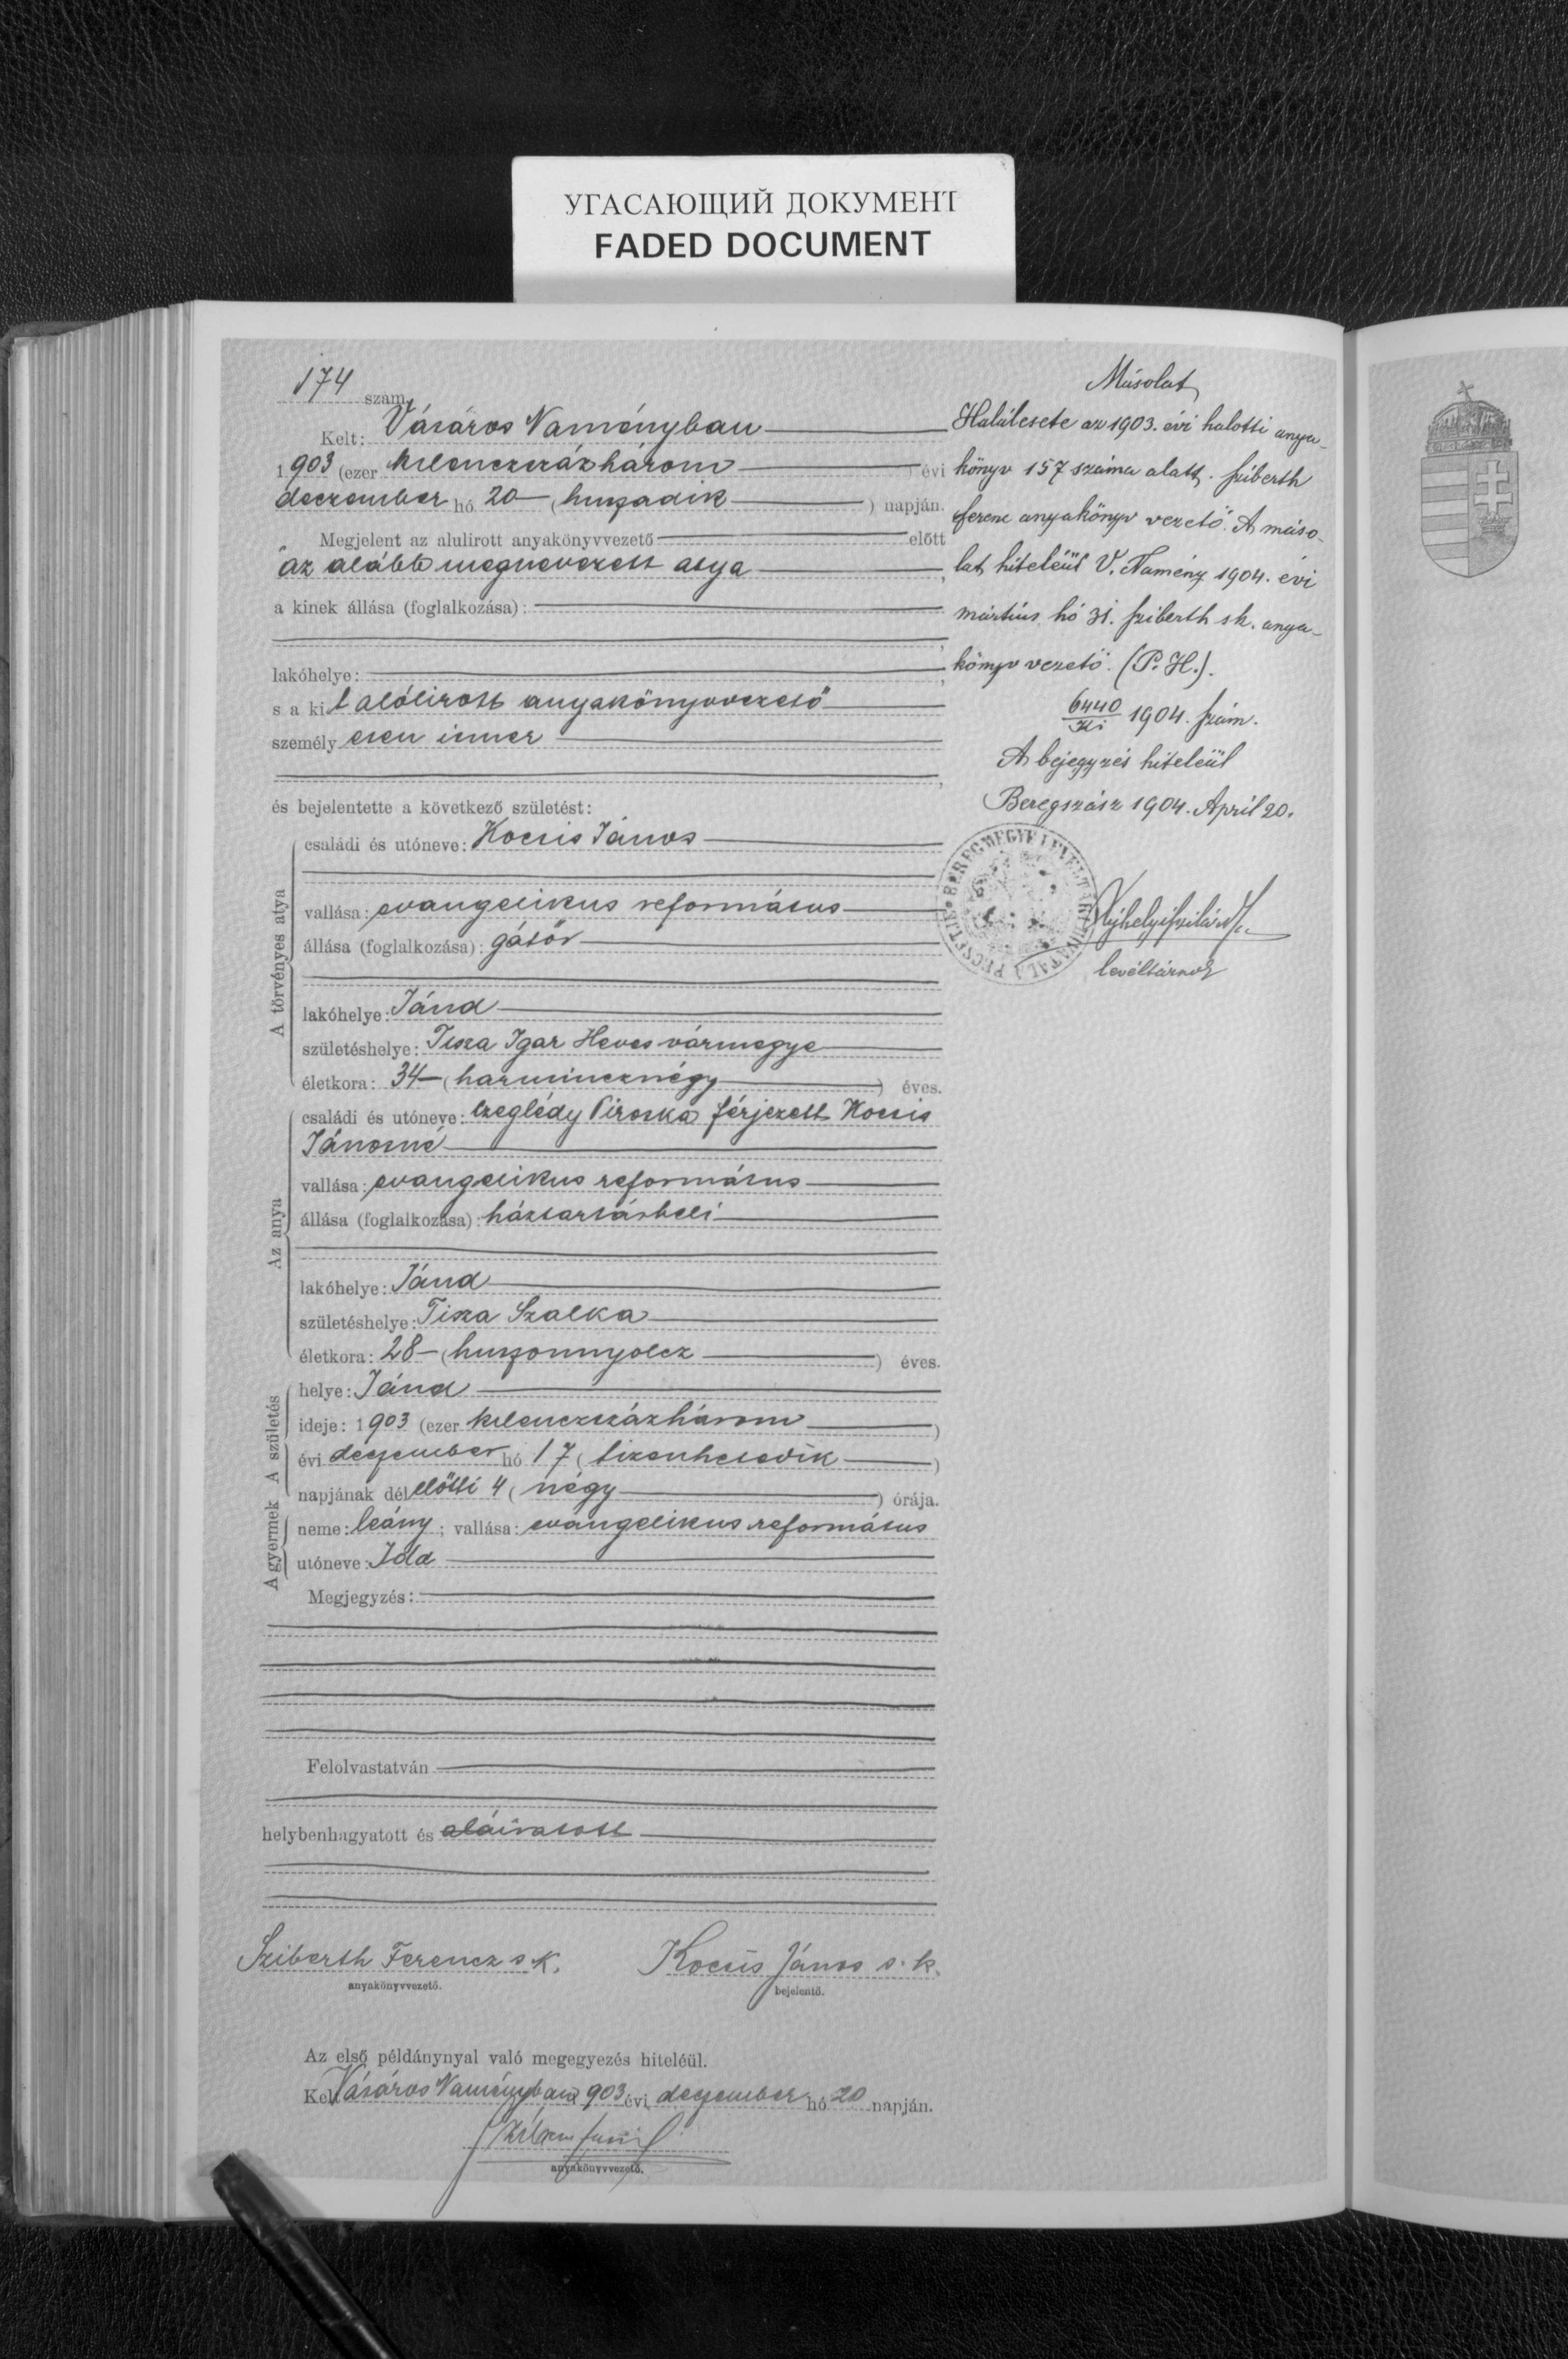 УГАСАЮЩИЙ ДОКУМЕНТ
FADED DOCUMENT
174 szám.
Kelt: Vásáros Naményban
1903 (ezer kilenczszázhárom) évi
deczember hó 20 (huszadik) napján.
Megjelent az alulirott anyakönyvvezető előtt
az alább megnevezett atya,
a kinek állása (foglalkozása):
lakóhelye:
s a kit alólirott anyakönyvvezető
személyesen ismer
és bejelentette a következő születést:
A törvényes atya
családi és utóneve: Kocsis János
vallása: evangelikus református
állása (foglalkozása): gátőr
lakóhelye: Jánd
születéshelye: Tisza Igar Heves vármegye
életkora: 34 (harmincznégy) éves.
Az anya
családi és utóneve: Czeglédy Piroska férjezett Kocsis
Jánosné
vallása: evangelikus református
állása (foglalkozása): háztartásbeli
lakóhelye: Jánd
születéshelye: Tisza Szalka
életkora: 28 (huszonnyolcz) éves.
A születés
helye: Jánd
ideje: 1903 (ezer kilenczszázhárom)
évi deczember hó 17 (tizenhetedik)
napjának délelőtti 4 (négy) órája.
A gyermek
neme: leány; vallása: evangelikus református
utóneve: Ida
Megjegyzés:
Felolvastatván
helybenhagyatott és aláiratott
Sziberth Ferencz s.k. Kocsis János s.k.
anyakönyvvezető. bejelentő.
Az első példánynyal való megegyezés hiteléül.
Kelt Vásáros Naményban 1903 évi deczember hó 20 napján.
anyakönyvvezető.
Másolat
Halálesete az 1903. évi halotti anya-
könyv 157 száma alatt. Sziberth
Ferenc anyakönyv vezető. A máso-
lat hiteléül V. Namény 1904. évi
mártius hó 31. Sziberth sk. anya-
könyv vezető. (P. H.).
6440
Ki 1904. szám.
A bejegyzés hiteléül
Beregszász 1904. April 20.
BEREGMEGYE LEVÉLTÁRI HIVATALA PECSÉTJE
levéltárnok